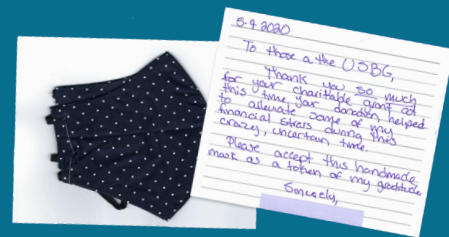 5-9-2020
To those a the USBG,
Thank you so much
for your charitable grant at
this time, your donation helped
to alleviate some of my
financial stress during this
crazy, uncertain time.
Please accept this handmade
mask as a token of my gratitude.
Sincerely,